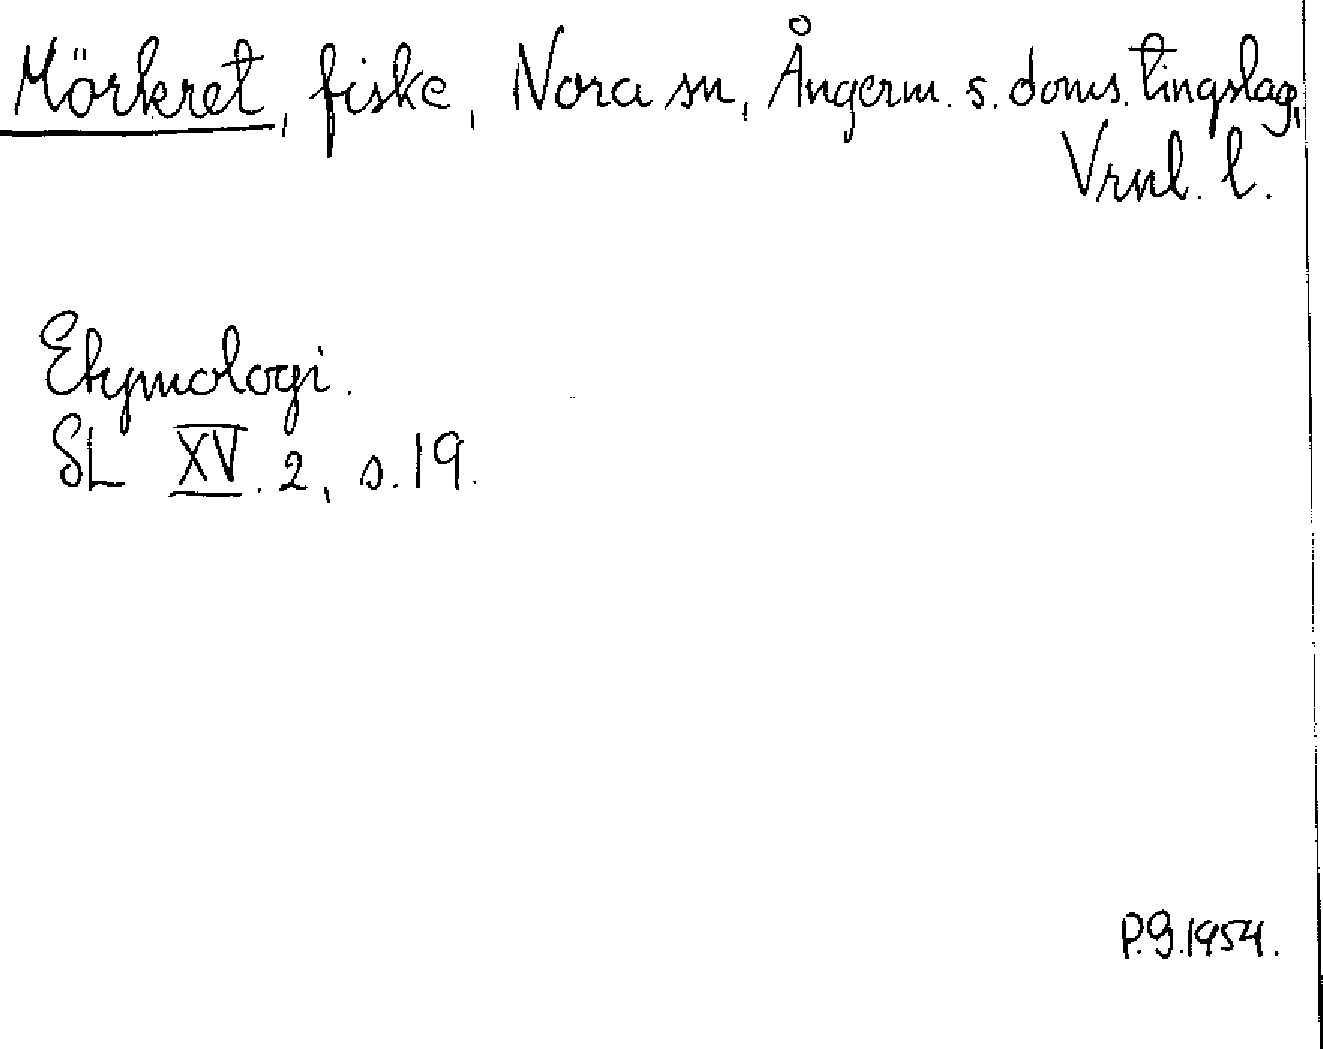 Mörkret, fiske, Nora sn, Ångerm. s. doms. tingslag,
Vrnl. l.
Etymologi.
SL XV. 2, s. 19.
P.G. 1954.